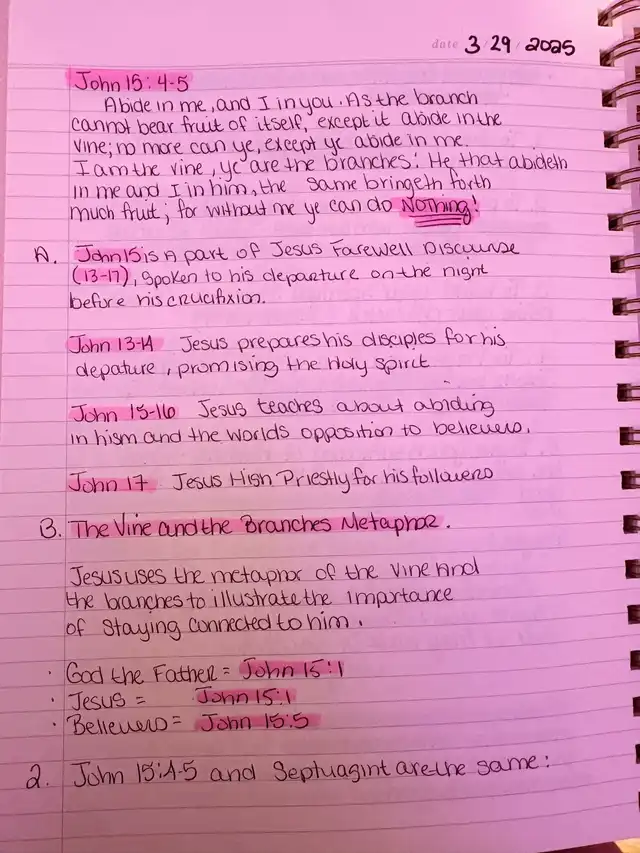 date 3/29/2025
John 15:4-5
Abide in me, and I in you. As the branch
cannot bear fruit of itself, except it abide in the
vine; no more can ye, except ye abide in me.
I am the vine, ye are the branches: He that abideth
in me and I in him, the same bringeth forth
much fruit; for without me ye can do Nothing!
A. John 15 is A part of Jesus Farewell Discourse
(13-17), spoken to his departure on the night
before his crucifixion.
John 13-14 Jesus prepares his disciples for his
depature, promising the Holy Spirit
John 15-16 Jesus teaches about abiding
in hism and the worlds opposition to believers.
John 17 Jesus High Priestly for his followers
B. The Vine and the Branches Metaphor.
Jesus uses the metaphor of the vine And
the branches to illustrate the importance
of staying connected to him.
· God the Father = John 15:1
· Jesus = John 15:1
· Believers = John 15:5
2. John 15:4-5 and Septuagint are the same: